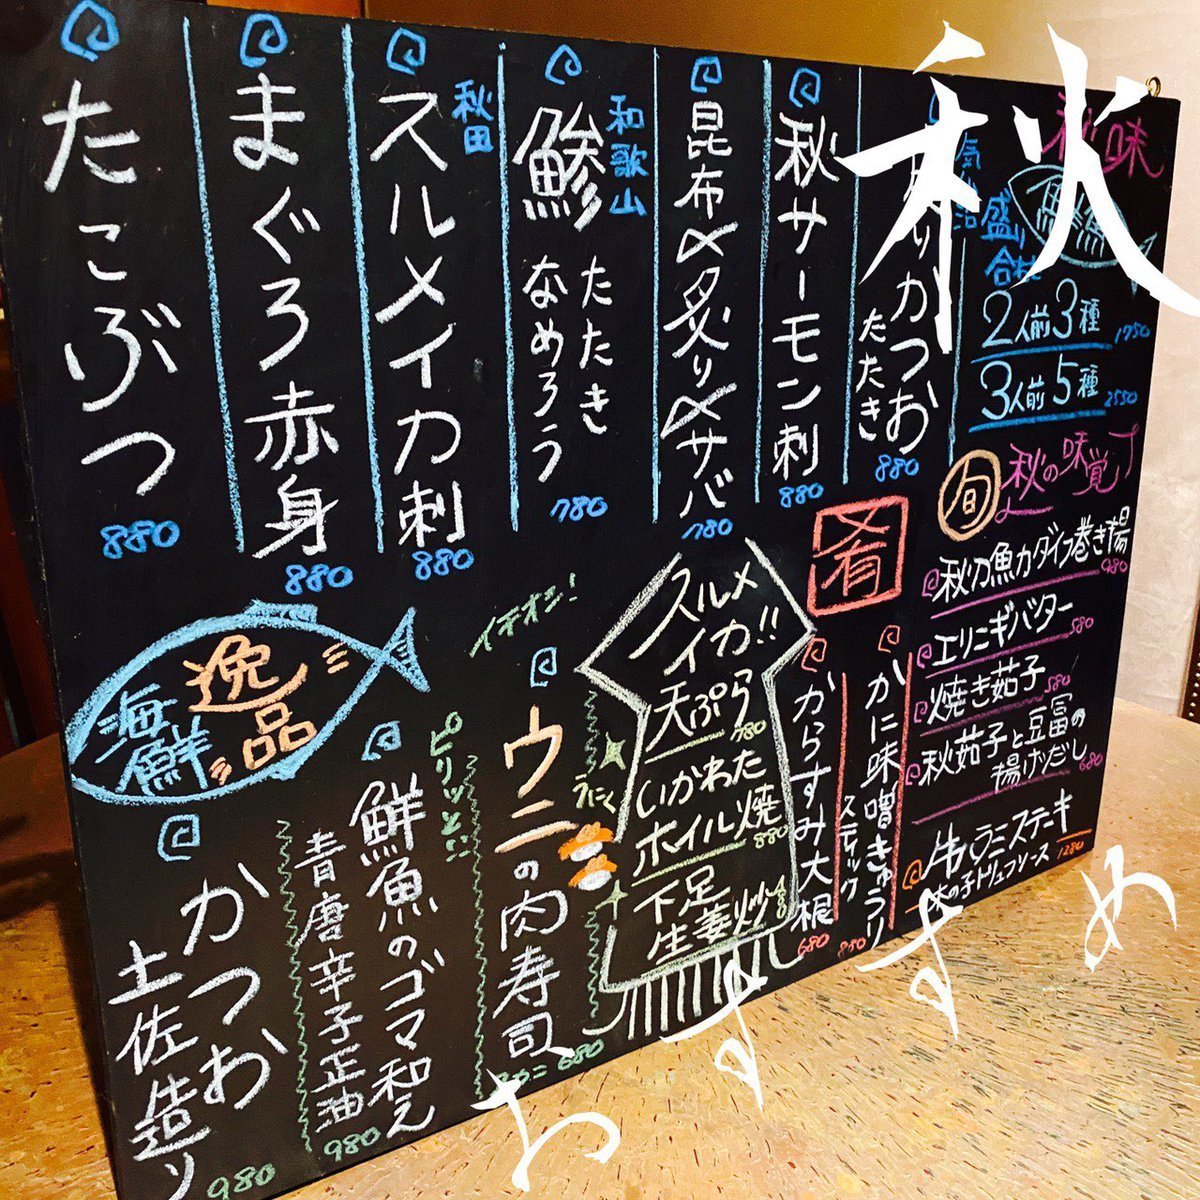 秋
おすすめ
秋味
鮮魚
盛り
合せ
2人前3種
1750
3人前5種
2550
りかつお
たたき
880
秋サーモン刺
880
昆布〆炙り〆サバ
780
和歌山
鯵
たたき
なめろう
780
秋田
スルメイカ刺
880
まぐろ赤身
880
たこぶつ
880
旬
秋の味覚
秋刀魚カダイフ巻き揚
980
エリンギバター
580
焼き茄子
580
秋茄子と豆冨の
揚げだし
680
牛ハラミステーキ
の子トリュフソース
1280
肴
かに味噌きゅうり
スティック
880
からすみ大根
680
スルメ
イカ!!
天ぷら
780
いかわた
ホイル焼
880
下足
生姜炒
イチオシ!
ウニの肉寿司
うにく
680
ピリッと
鮮魚のゴマ和え
青唐辛子正油
980
海鮮
逸品
かつお
土佐造り
980